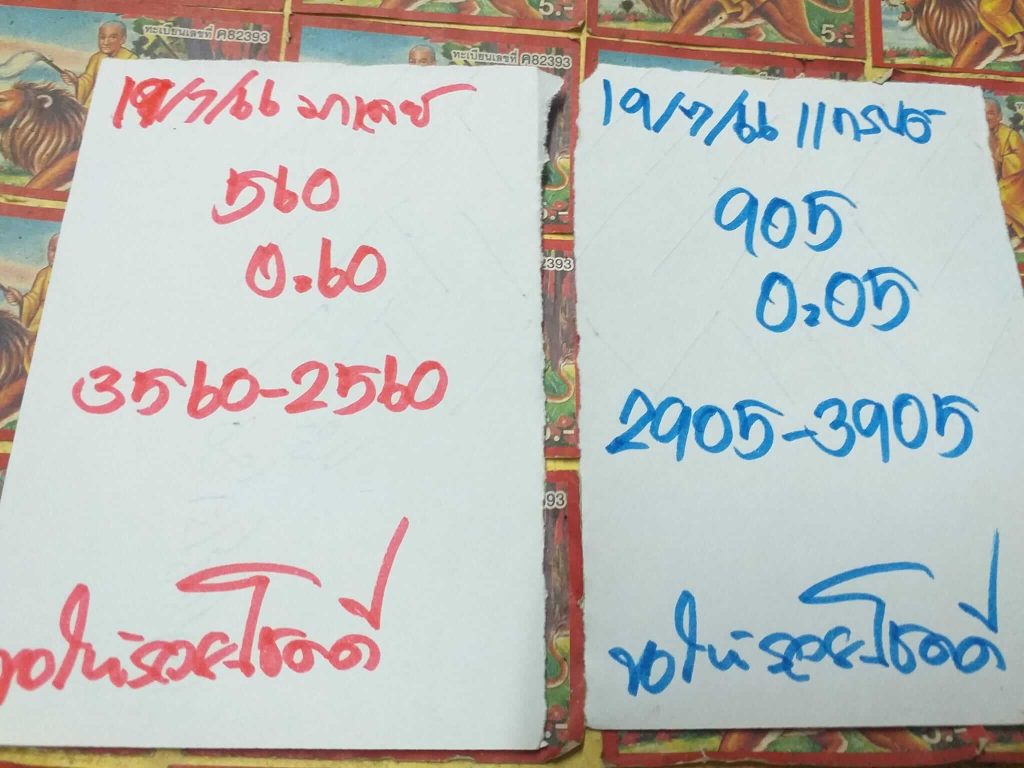 5.-
5.-
ทะเบียนเลขที่ ค82393
ทะเบียนเลขที่ ค82393
19/7/66 มาเลย์
560
0.60
3560-2560
ขอให้รวยโชคดี
19/7/66 แกรนด์
905
0.05
2905-3905
ขอให้รวยโชคดี
5.-
2393
5.-
93